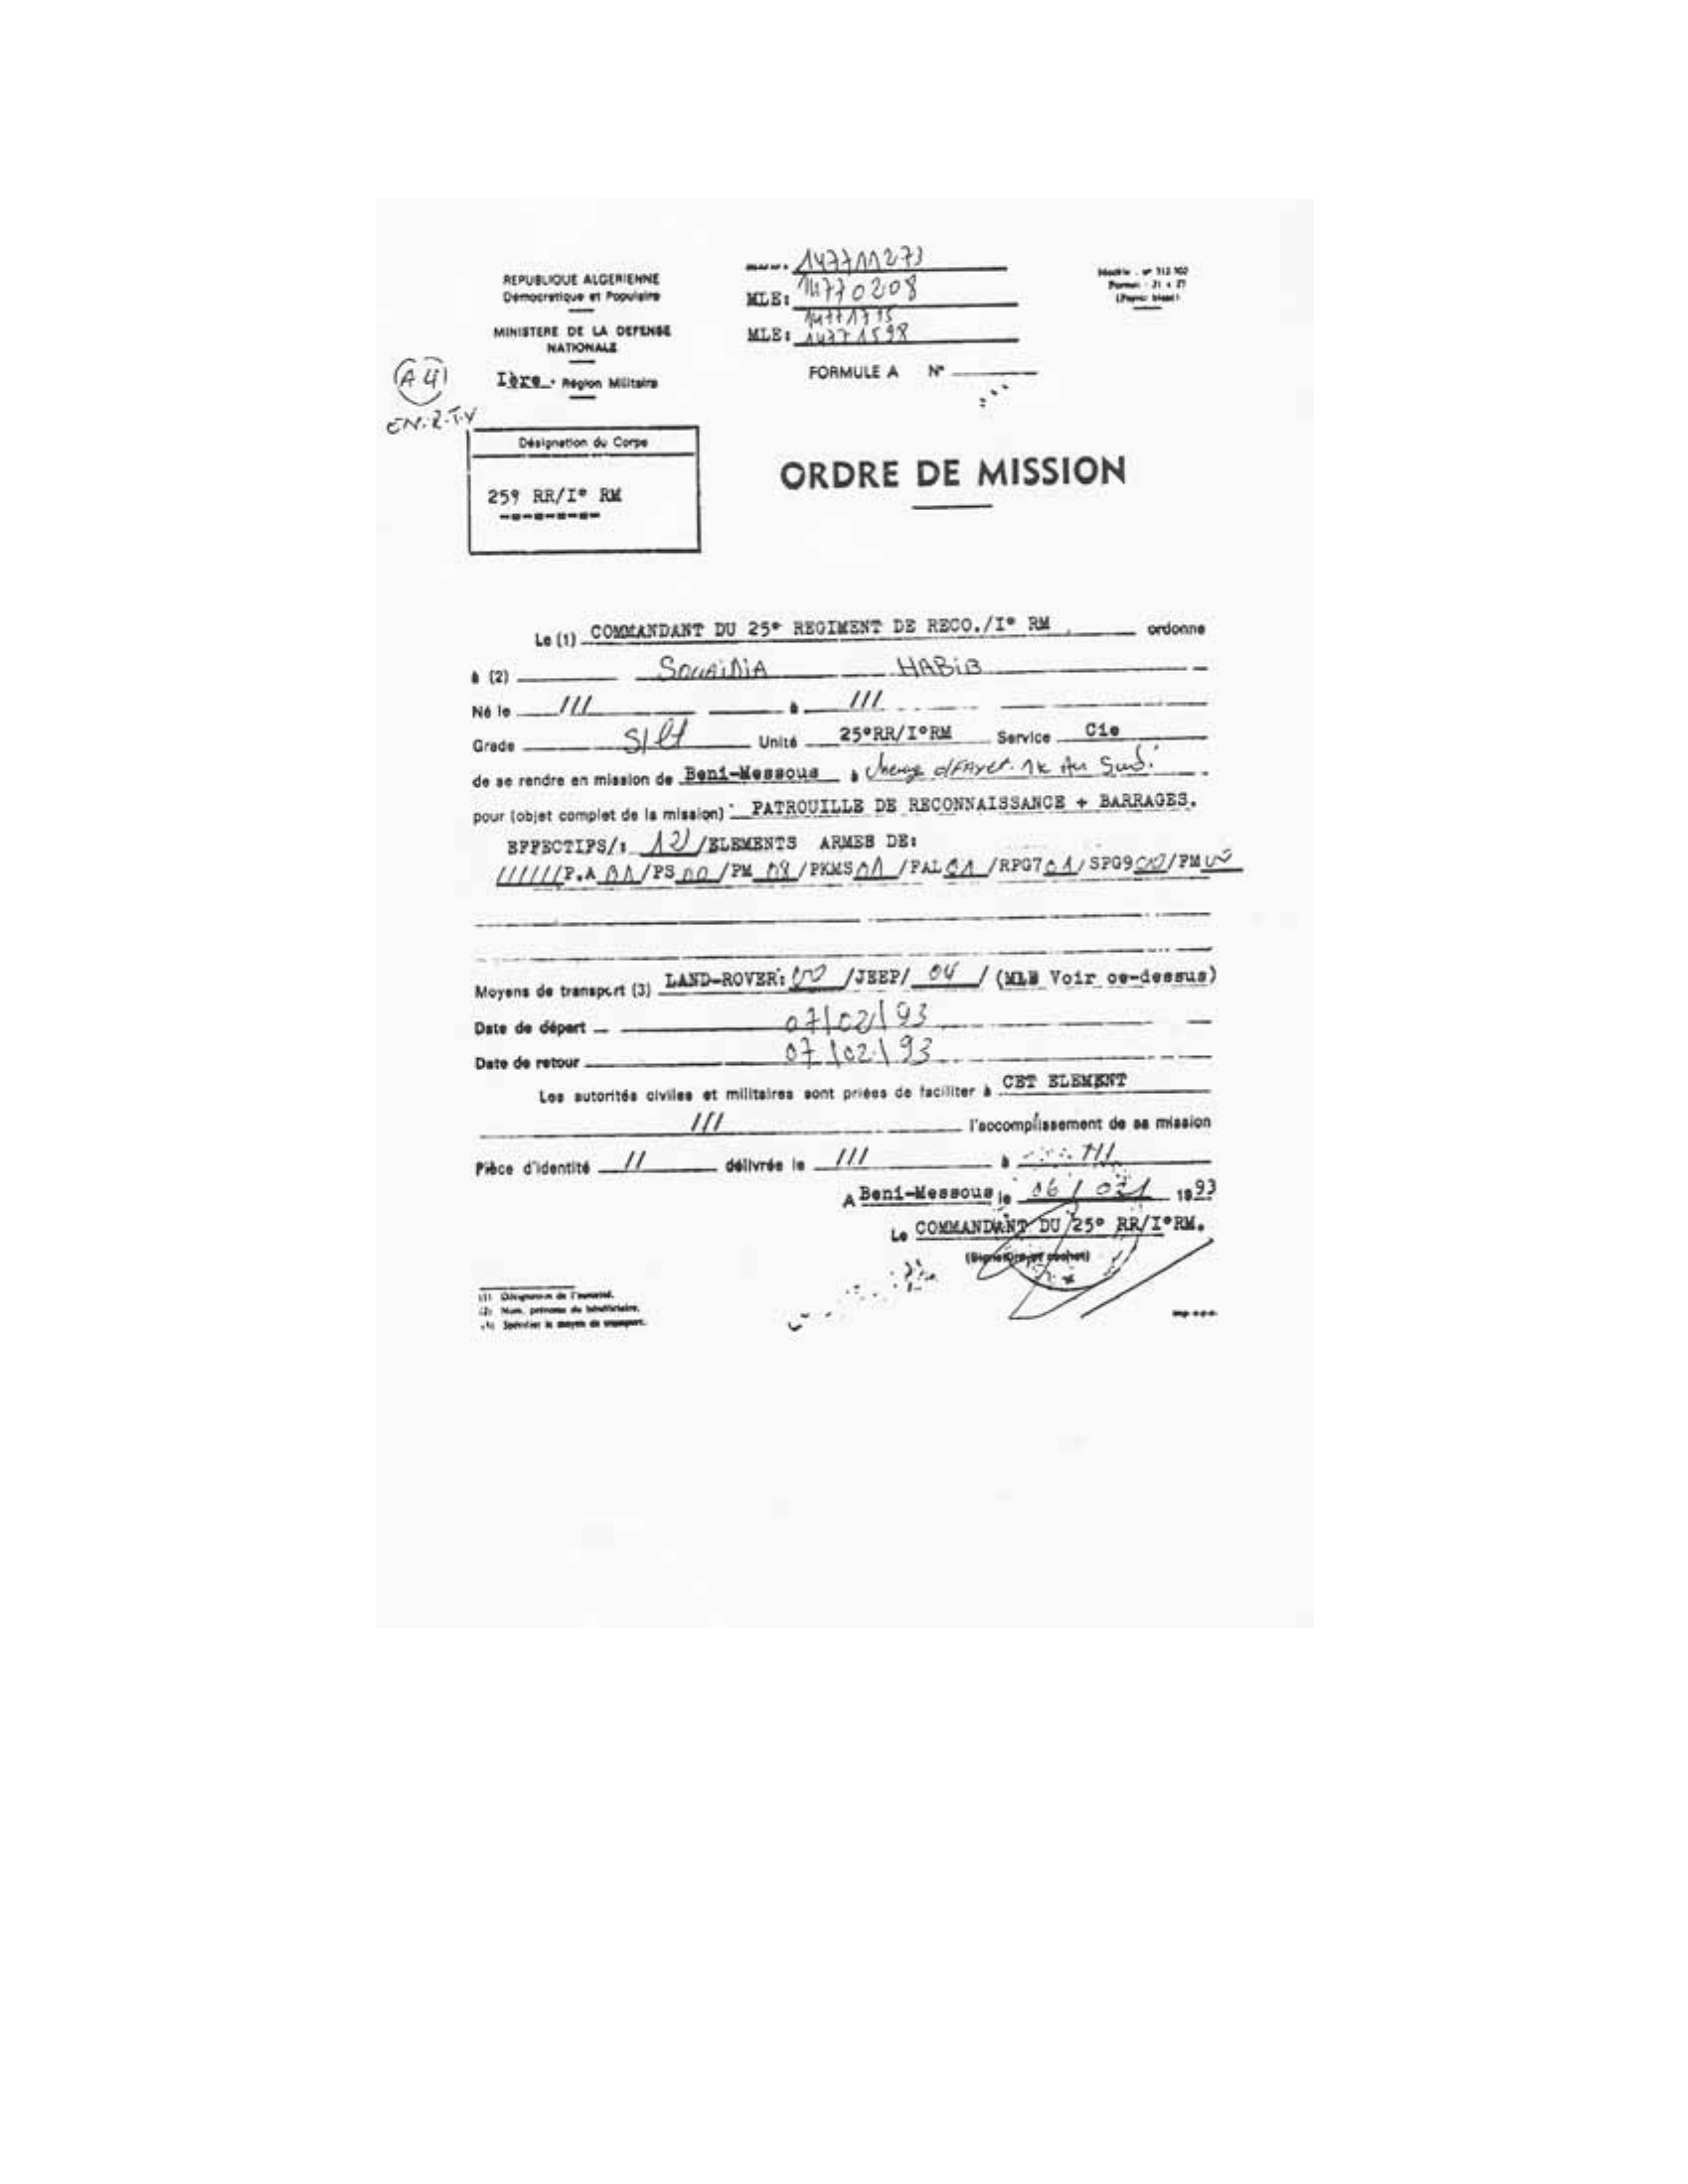 REPUBLIQUE ALGERIENNE
Démocratique et Populaire
MINISTERE DE LA DEFENSE
NATIONALE
Ière. Région Militaire
A 4
EN.R.T.V
MLE: 14770208
MLE: 14771598
FORMULE A N°
Désignation du Corps
25° RR/I° RM
ORDRE DE MISSION
Le (1) COMMANDANT DU 25° REGIMENT DE RECO./I° RM ordonne
à (2) SOUAIDIA HABIB
Né le /// à ///
Grade S/Lt Unité 25°RR/I°RM Service Cie
de se rendre en mission de Beni-Messous à 1K Au Sud.
pour (objet complet de la mission) : PATROUILLE DE RECONNAISSANCE + BARRAGES.
EFFECTIFS/: 12 /ELEMENTS ARMES DE:
//////P.A 01/PS 00/PM 08/PKMS 01/FAL 01/RPG7 01/SPG9 00/FM 00
Moyens de transport (3) LAND-ROVER: 00 /JEEP/ 04 / (MLE Voir ce-dessus)
Date de départ 07/02/93
Date de retour 07/02/93
Les autorités civiles et militaires sont priées de faciliter à CET ELEMENT
/// l'accomplissement de sa mission
Pièce d'identité // délivrée le /// à ///
A Beni-Messous le 06 / 1993
Le COMMANDANT DU 25° RR/I°RM.
(Signature et cachet)
(1) Désignation de l'autorité.
(2) Nom, prénoms du bénéficiaire.
(3) Spécifier le moyen de transport.